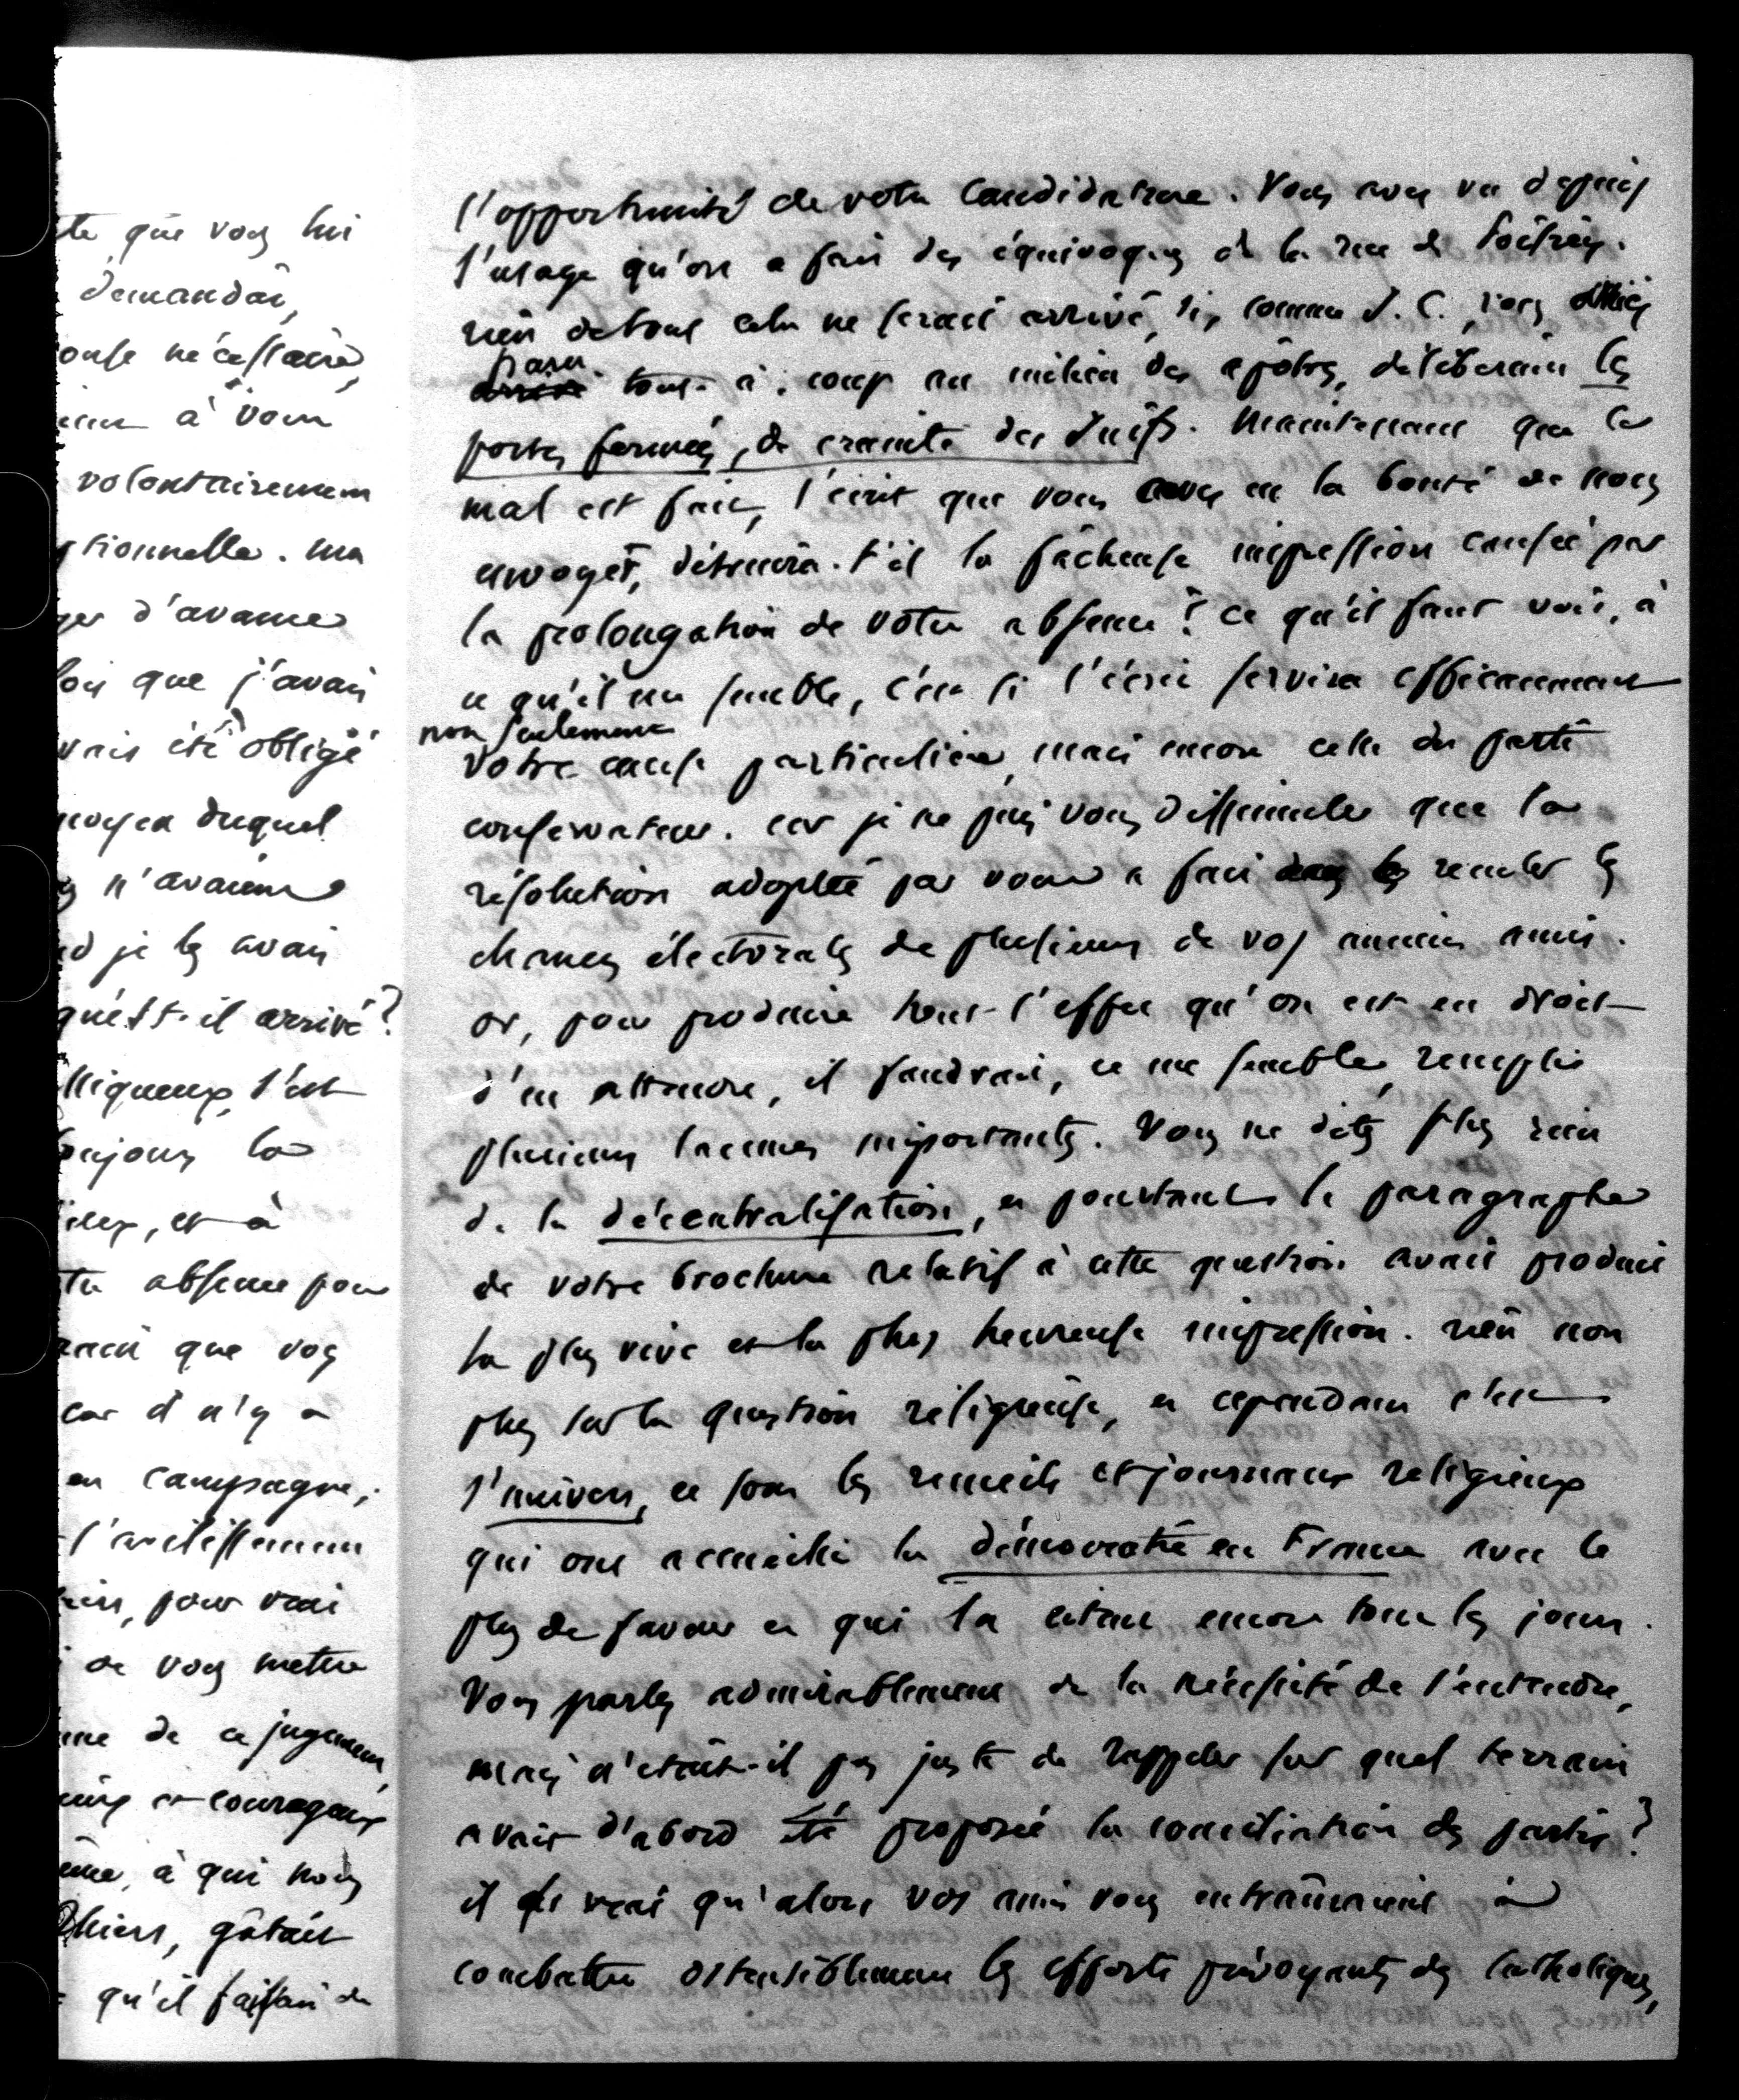 te que vous lui
demandait,
onse nécessaire,
à vous
volontairement
tionnelle. ma
ger d'avance
lois que j'avais
vais été obligé
moyen duquel
n'avaient
nd je les avais
qu'est-il arrivé?
lliqueux, s'est
toujours la
et à
tre absence pour
que vous
car il n'y a
en campagne,
l'avilissement
pour vrai
de vous mettre
de ce jugement,
et courageux
ême, à qui nous
Thiers, gâtait
qu'il faisait de
l'opportunité de votre candidature. Vous avez vu depuis
l'usage qu'on a fait des équivoques de la rue de Poitiers.
rien de tout cela ne serait arrivé, si, comme J. C., vous étiez
paru tout à coup au milieu des apôtres, délibérant les
portes fermées, de crainte des Juifs. Maintenant que le
mal est fait, l'écrit que vous avez eu la bonté de nous
envoyer, détruira-t'il la fâcheuse impression causée par
la prolongation de votre absence? Ce qu'il faut voir, à
ce qu'il me semble, c'est si l'écrit servira efficacement
non seulement
votre cause particulière, mais encore celle du parti
conservateur. car je ne puis vous dissimuler que la
résolution adoptée par vous a fait reculer les
chances électorales de plusieurs de vos anciens amis.
or, pour produire tout l'effet qu'on est en droit
d'en attendre, il faudrait, ce me semble, remplir
plusieurs lacunes importantes. Vous ne dites plus rien
de la décentralisation, et pourtant le paragraphe
de votre brochure relatif à cette question avait produit
la plus vive et la plus heureuse impression. rien non
plus sur la question religieuse, et cependant c'est
l'univers, ce sont les recueils et journaux religieux
qui ont accueilli la démocratie en France avec le
plus de faveur et qui la citent encore tous les jours.
Vous parlez admirablement de la nécessité de s'entendre,
mais n'était-il pas juste de rappeler sur quel terrain
avait d'abord été proposée la conciliation des partis?
il est vrai qu'alors vos amis vous entraînaient à
combattre ostensiblement les efforts prévoyants des catholiques,